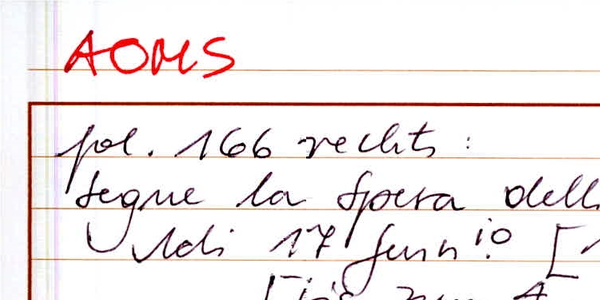 AOMS
fol. 166 rechts:
segue la spera dell
Adi 17 Junnio [1